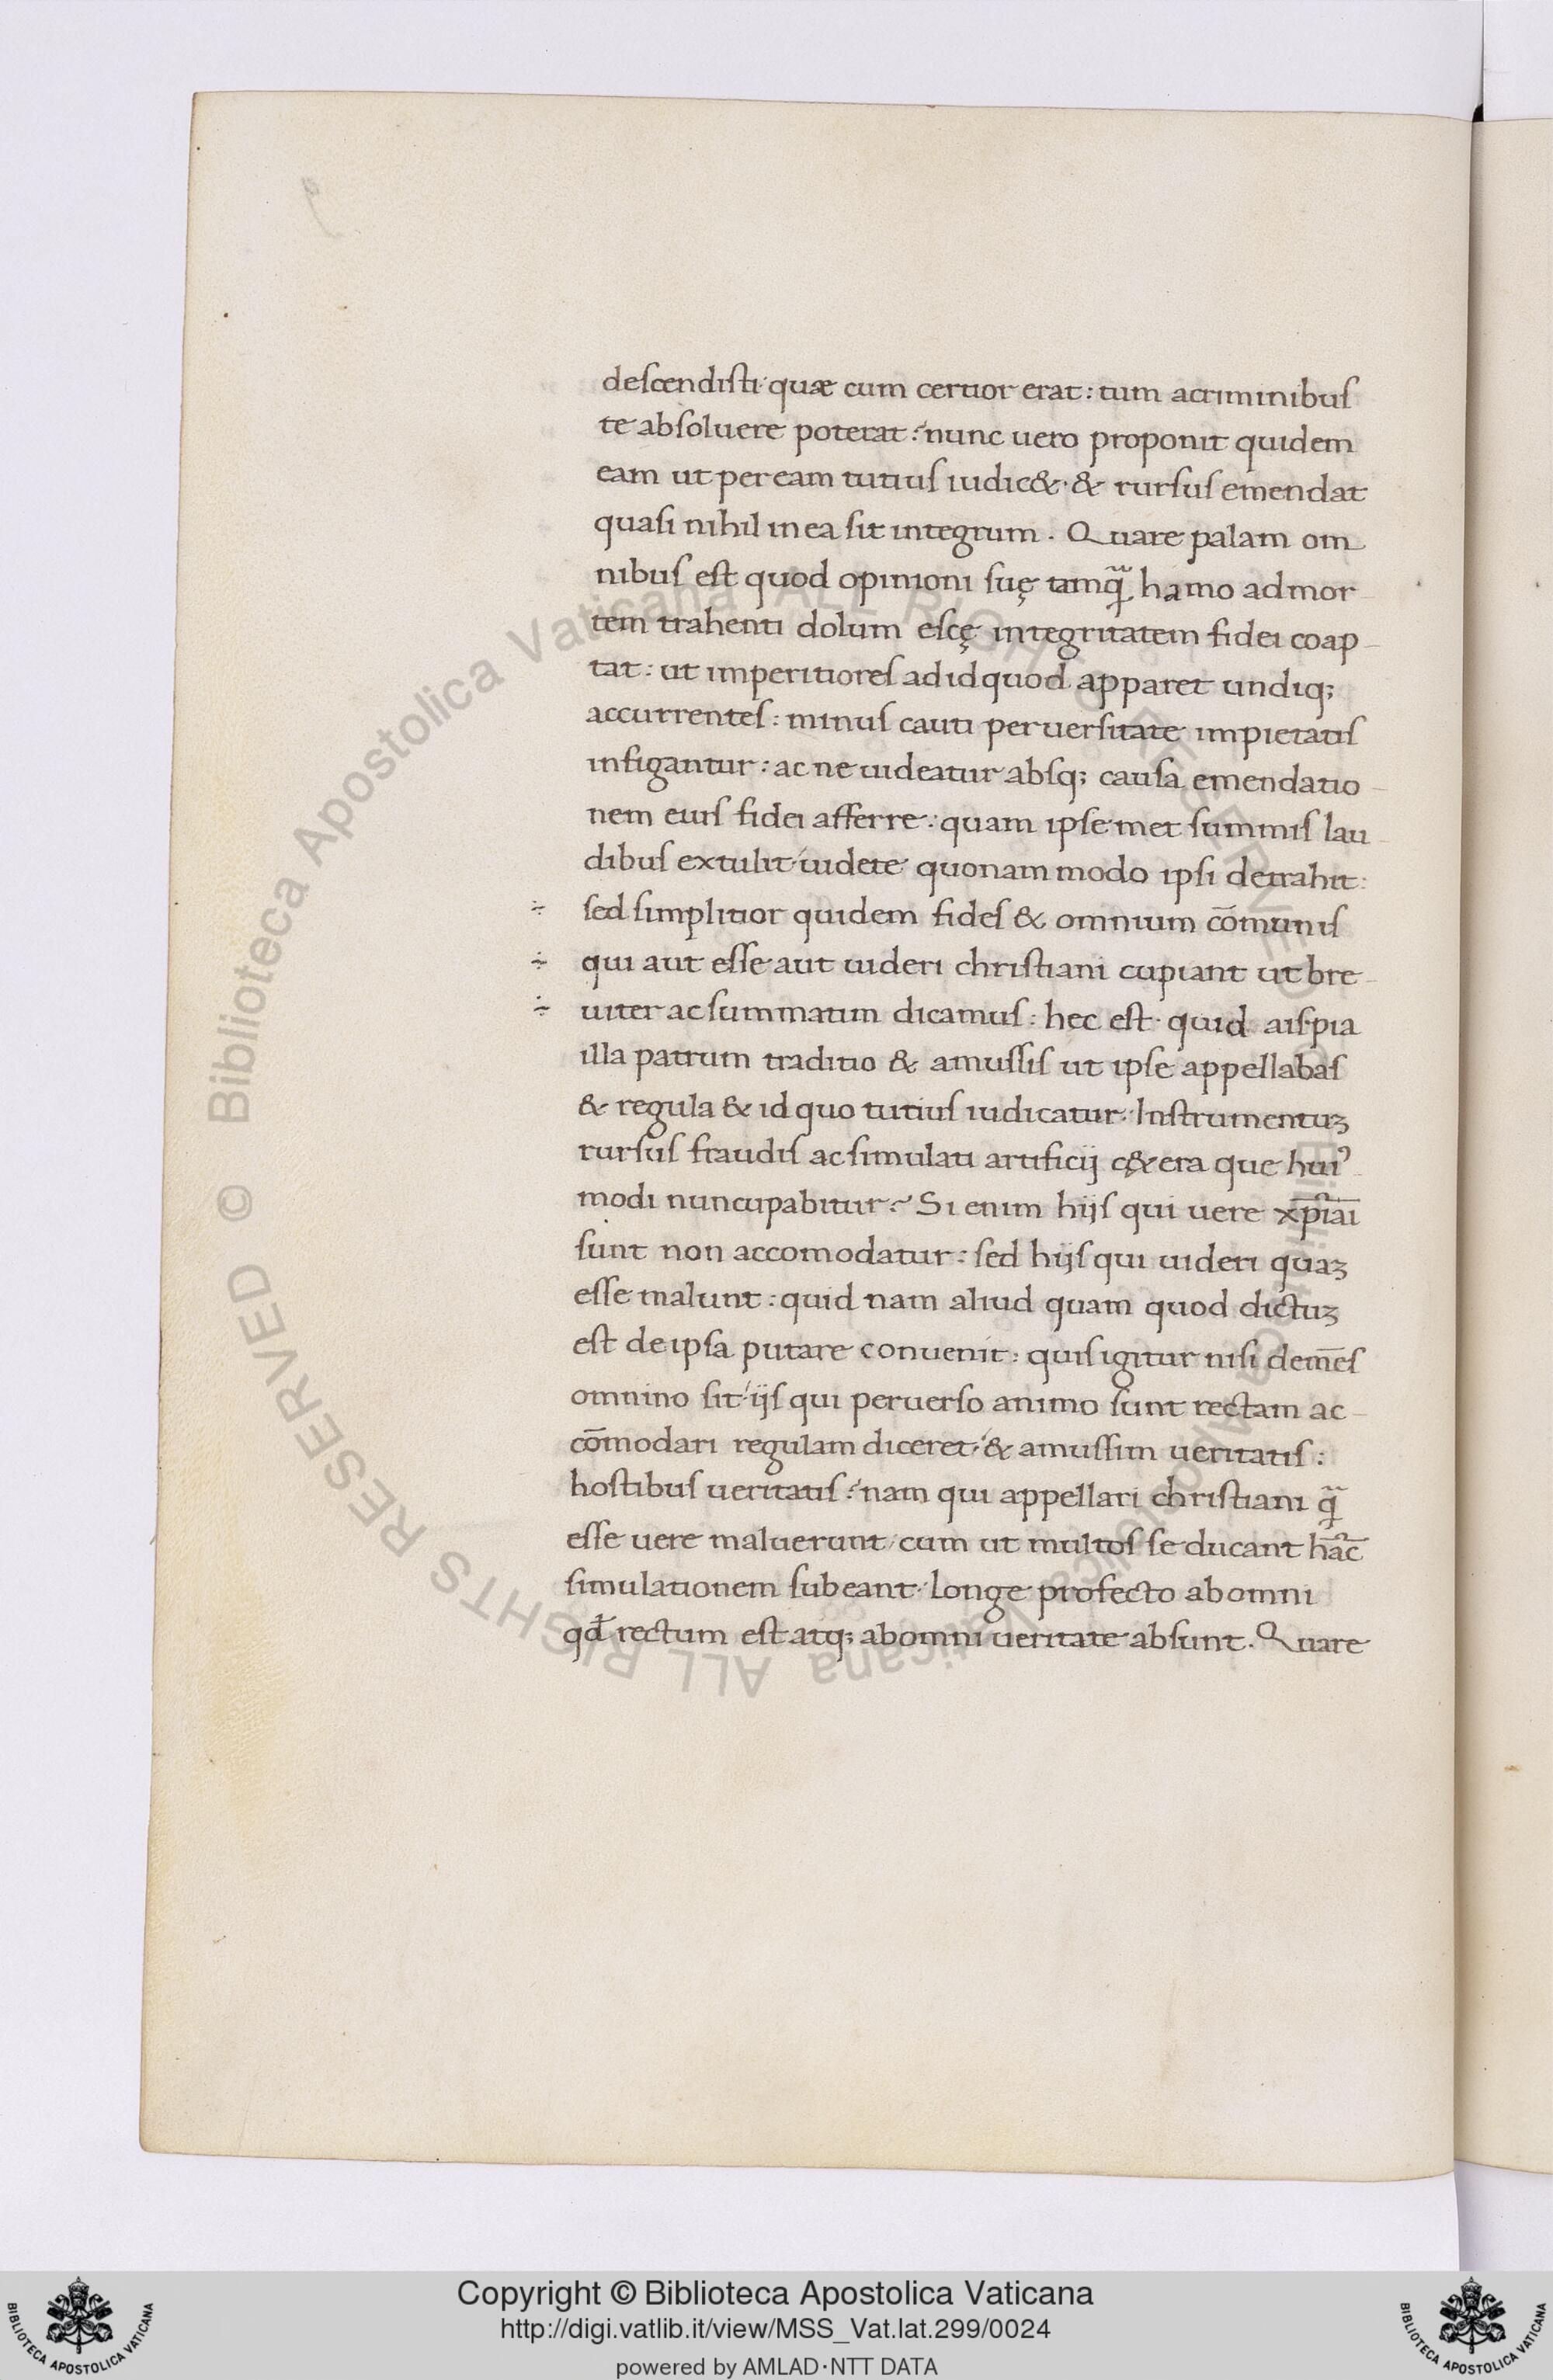 descendisti quæ cum certior erat: tum acriminibus
te absoluere poterat: nunc uero proponit quidem
eam ut per eam tutius iudic&. & rursus emendat
quasi nihil in ea sit integrum. Quare palam om
nibus est quod opinioni suę tamq̃ hamo ad mor-
tem trahenti dolum escę integritatem fidei coap-
tat: ut imperitiores ad id quod apparet undiq;
accurrentes: minus cauti peruersitate impietatis
infigantur: ac ne uideatur absq; causa emendatio-
nem eius fidei afferre: quam ipse met summis lau-
dibus extulit uidete quonam modo ipsi detrahit:
÷ sed simplitior quidem fides & omnium cōmunis
÷ qui aut esse aut uideri christiani cupiant ut bre-
÷ uiter ac summatim dicamus: hec est. quid ais pia
illa patrum traditio & amussis ut ipse appellabas
& regula & id quo tutius iudicatur. Instrumentuʒ
rursus fraudis ac simulati artificij c&era que hui⁹
modi nuncupabitur? Si enim hijs qui uere xp̄iāi
sunt non accomodatur: sed hijs qui uideri quaʒ
esse malunt: quid nam aliud quam quod dictuʒ
est de ipsa putare conuenit: quis igitur nisi demēs
omnino sit ijs qui peruerso animo sunt rectam ac-
cōmodari regulam diceret, & amussim ueritatis:
hostibus ueritatis? nam qui appellari christiani q̃
esse uere maluerunt, cum ut multos se ducant hāc
simulationem subeant. longe profecto ab omni
qđ rectum est atq; ab omni ueritate absunt. Quare
© Biblioteca Apostolica Vaticana ALL RIGHTS RESERVED
© Biblioteca Apostolica Vaticana ALL RIGHTS RESERVED
BIBLIOTECA APOSTOLICA VATICANA
Copyright © Biblioteca Apostolica Vaticana
http://digi.vatlib.it/view/MSS_Vat.lat.299/0024
powered by AMLAD·NTT DATA
BIBLIOTECA APOSTOLICA VATICANA